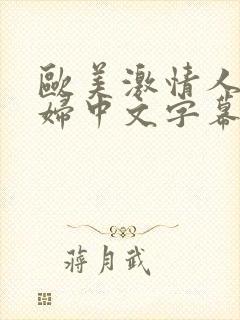 歐美激情人
婦中文字幕
蔣月武